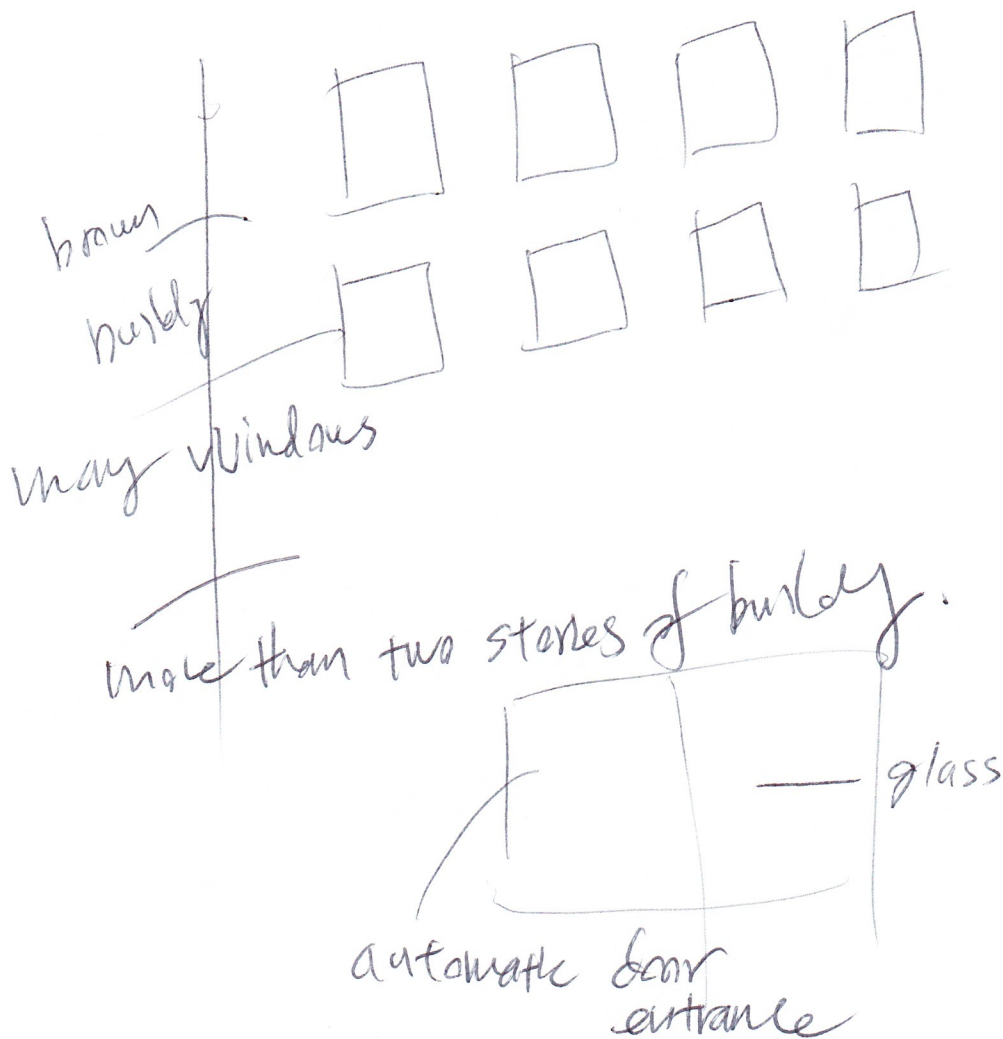 brown
buildg
many windows
more than two stories of buildg.
glass
automatic door
entrance